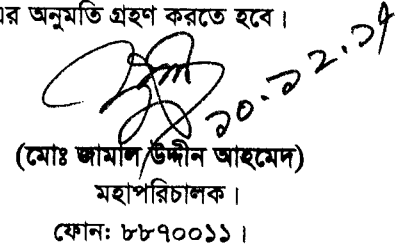 র অনুমতি গ্রহণ করতে হবে।
১০.১২.১৭
(মোঃ জামাল উদ্দীন আহমেদ)
মহাপরিচালক।
ফোনঃ ৮৮৭০০১১।